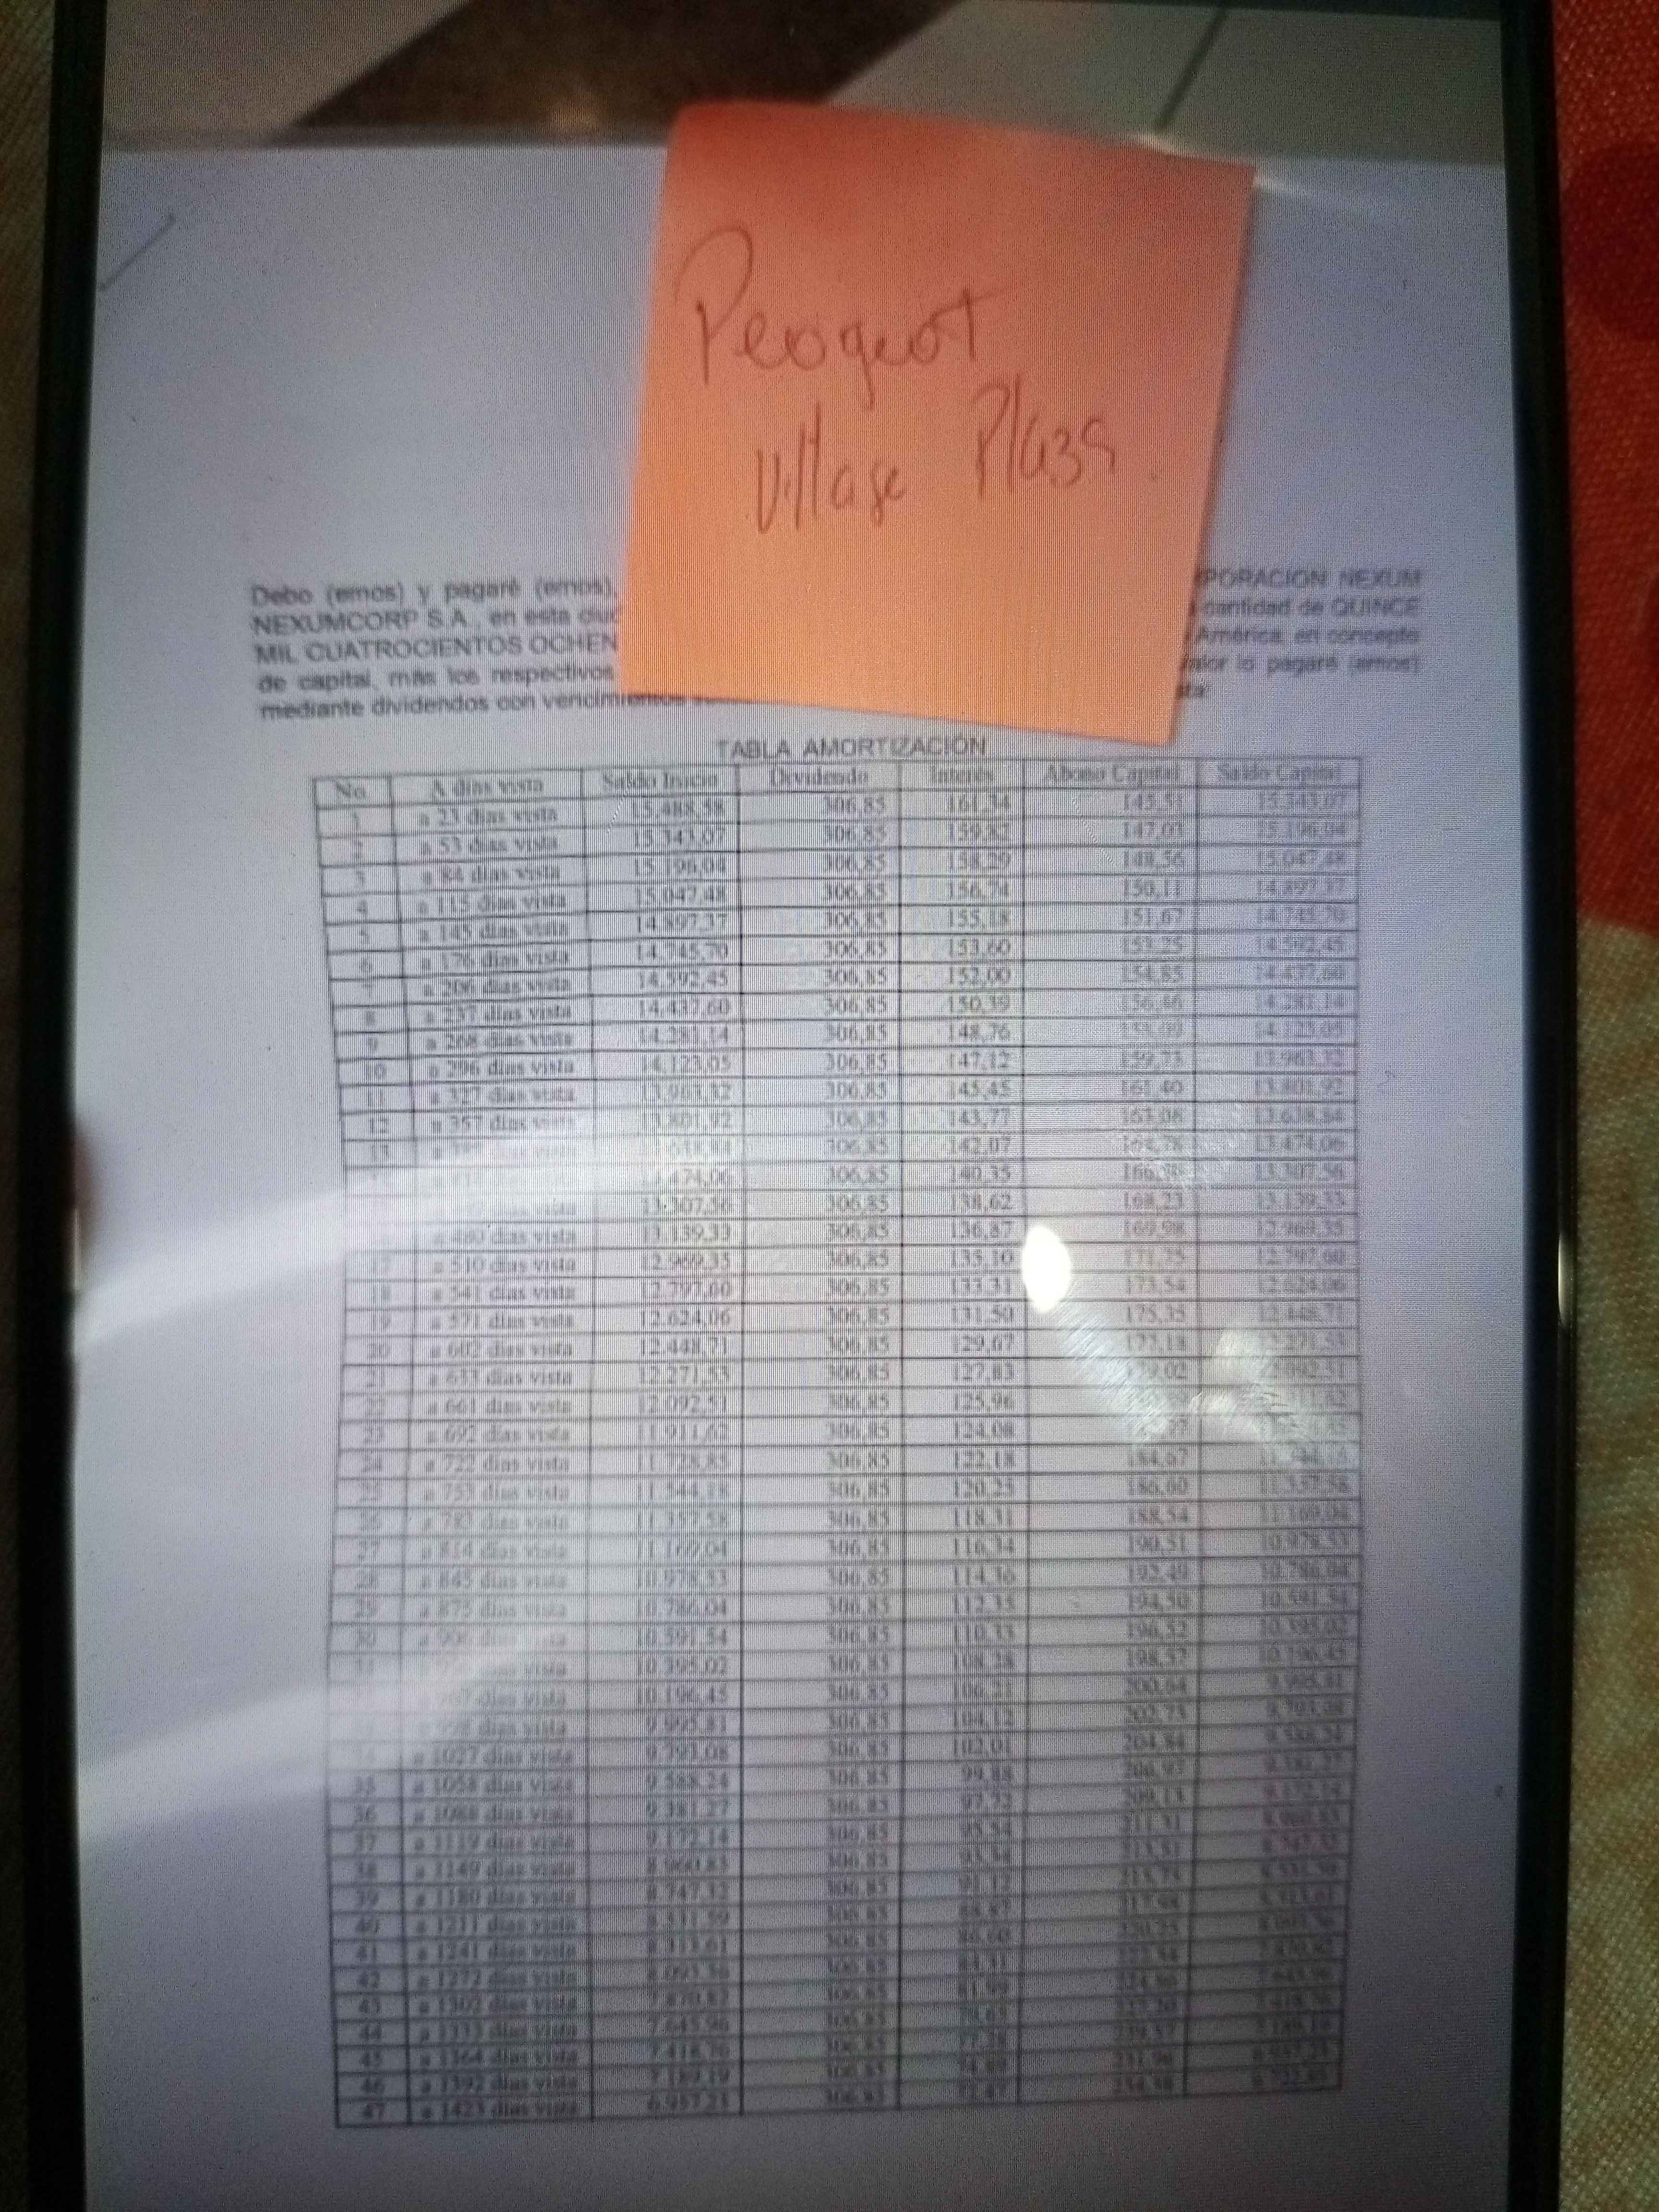 Peogeot
Village Plaza
Debo (emos) y pagaré (emos), PORACION NEXUM
NEXUMCORP S.A., en esta ciud cantidad de QUINCE
MIL CUATROCIENTOS OCHEN América, en concepto
de capital, más los respectivos lo pagaré (emos)
mediante dividendos con vencimientos
TABLA AMORTIZACIÓN
No. A días vista Saldo Inicio Dividendo Interés Abono Capital Saldo Capital
1 a 23 días vista 15.488,58 306,85 161,34 145,51 15.343,07
2 a 53 días vista 15.343,07 306,85 159,82 147,03 15.196,04
3 a 84 días vista 15.196,04 306,85 158,29 148,56 15.047,48
4 a 115 días vista 15.047,48 306,85 156,74 150,11 14.897,37
5 a 145 días vista 14.897,37 306,85 155,18 151,67 14.745,70
6 a 176 días vista 14.745,70 306,85 153,60 153,25 14.592,45
7 a 206 días vista 14.592,45 306,85 152,00 154,85 14.437,60
8 a 237 días vista 14.437,60 306,85 150,39 156,46 14.281,14
9 a 268 días vista 14.281,14 306,85 148,76 158,09 14.123,05
10 a 296 días vista 14.123,05 306,85 147,12 159,73 13.963,32
11 a 327 días vista 13.963,32 306,85 145,45 161,40 13.801,92
12 a 357 días vista 13.801,92 306,85 143,77 163,08 13.638,84
13 13.638,84 306,85 142,07 164,78 13.474,06
13.474,06 306,85 140,35 13.307,56
vista 13.307,56 306,85 138,62 168,23 13.139,33
a 480 días vista 13.139,33 306,85 136,87 169,98 12.969,35
17 a 510 días vista 12.969,35 306,85 135,10 171,75 12.797,60
18 a 541 días vista 12.797,60 306,85 133,31 173,54 12.624,06
19 a 571 días vista 12.624,06 306,85 131,50 175,35 12.448,71
20 a 602 días vista 12.448,71 306,85 129,67 177,18 12.271,53
21 a 633 días vista 12.271,53 306,85 127,83 12.092,51
22 a 661 días vista 12.092,51 306,85 125,96
23 a 692 días vista 11.911,62 306,85 124,08
24 a 722 días vista 11.728,85 306,85 122,18 184,67
25 a 753 días vista 11.544,18 306,85 120,25 186,60 11.357,58
26 a 783 días vista 11.357,58 306,85 118,31 188,54 11.169,04
27 a 814 días vista 11.169,04 306,85 116,34 190,51 10.978,53
28 a 845 días vista 10.978,53 306,85 114,36 192,49 10.786,04
29 a 875 días vista 10.786,04 306,85 112,35 194,50 10.591,54
30 a 906 días vista 10.591,54 306,85 110,33 196,52 10.395,02
vista 10.395,02 306,85 108,28 198,57 10.196,45
días vista 10.196,45 306,85 106,21 200,64 9.995,81
días vista 9.995,81 306,85 104,12 202,73 9.793,08
a 1027 días vista 9.793,08 306,85 102,01 204,84 9.588,24
35 a 1058 días vista 9.588,24 306,85 99,88 206,97 9.381,27
36 a 1088 días vista 9.381,27 306,85 97,72 209,13 9.172,14
37 a 1119 días vista 9.172,14 306,85 95,54 211,31 8.960,83
38 a 1149 días vista 8.960,83 306,85 93,34 213,51 8.747,32
39 a 1180 días vista 8.747,32 306,85 91,12 215,73 8.531,59
40 a 1211 días vista 8.531,59 306,85 88,87 217,98 8.313,61
41 a 1241 días vista 8.313,61 306,85 86,60 220,25 8.093,36
42 a 1272 días vista 8.093,36 306,85 84,31 222,54 7.870,82
43 a 1302 días vista 7.870,82 306,85 81,99 224,86 7.645,96
44 a 1333 días vista 7.645,96 306,85 79,65 227,20 7.418,76
45 a 1364 días vista 7.418,76 306,85 77,28 229,57 7.189,19
46 a 1392 días vista 7.189,19 306,85 74,89 231,96 6.957,23
47 a 1423 días vista 6.957,23 306,85 72,47 234,38 6.722,85